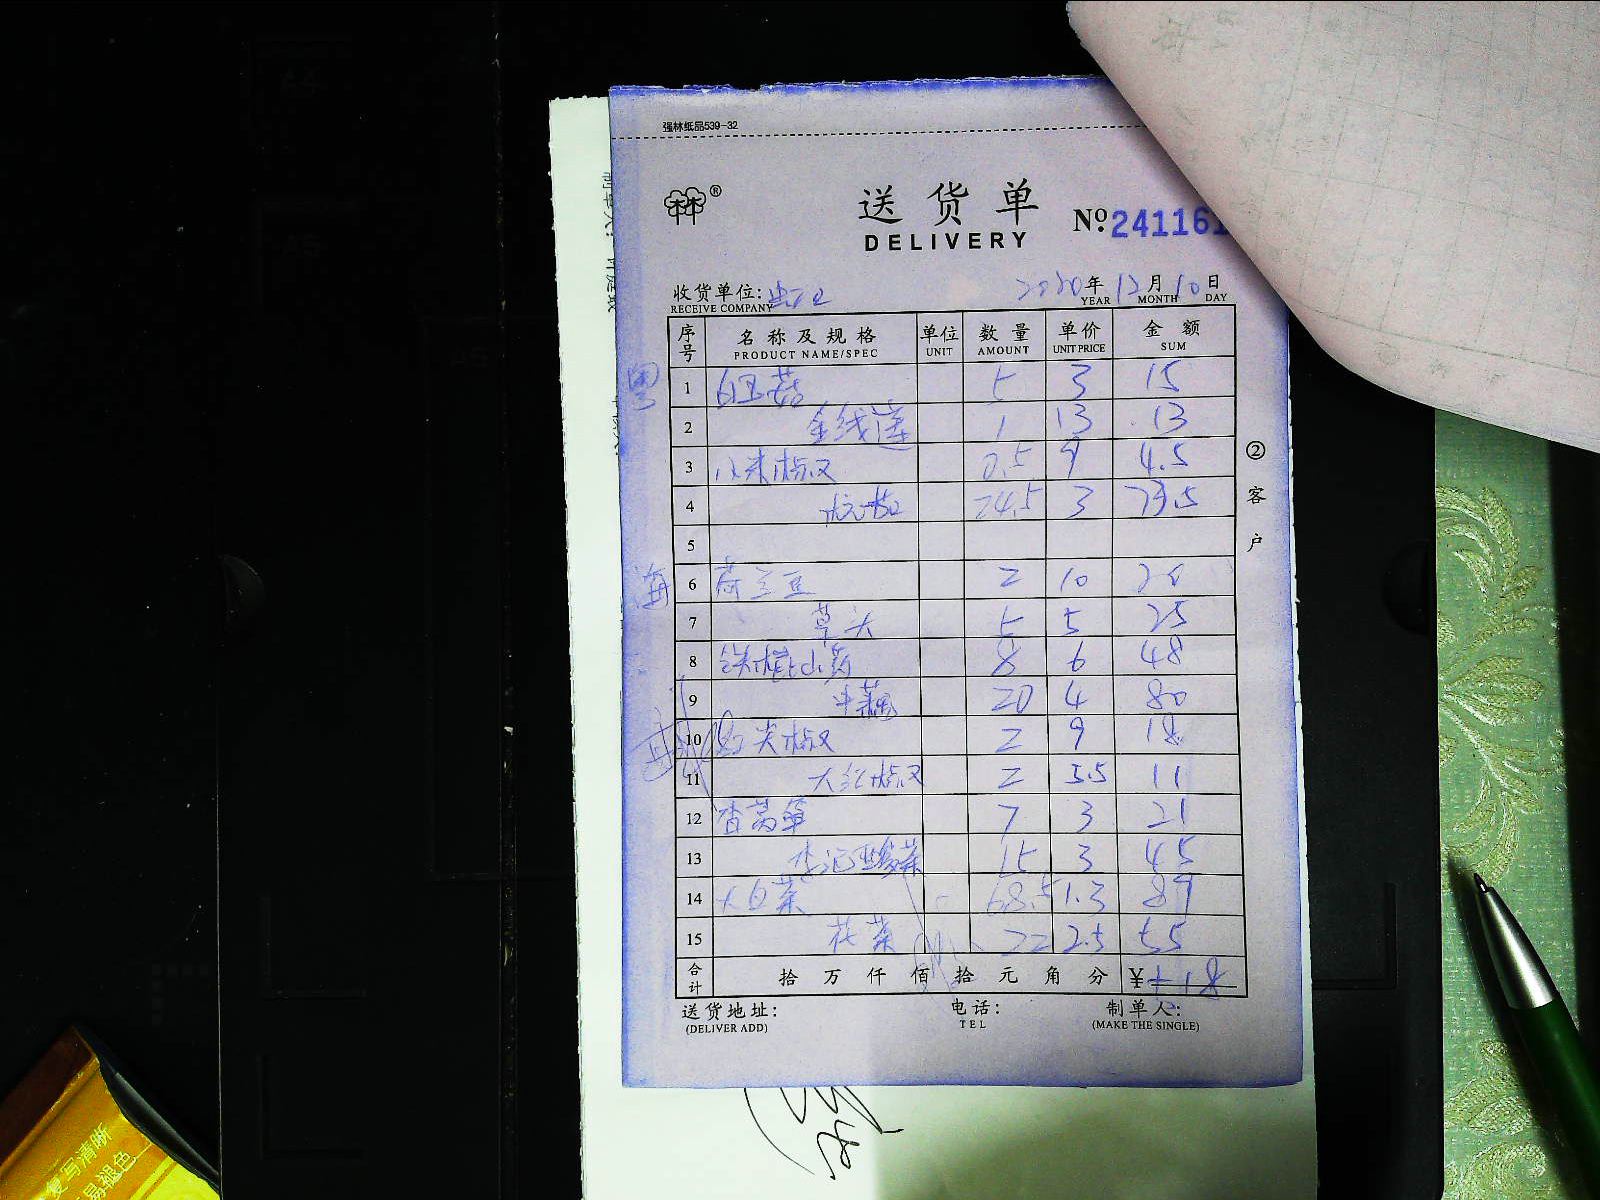 强林纸品539-32
林®
送货单
DELIVERY
№241161
收货单位:
RECEIVE COMPANY
2020年12月10日
YEAR MONTH DAY
序号 名称及规格 单位 数量 单价 金额
PRODUCT NAME/SPEC UNIT AMOUNT UNIT PRICE SUM
粤
1 白玉菇 5 3 15
2 金线莲 1 13 13
3 小米椒 0.5 9 4.5
4 杭茄 24.5 3 73.5
5
海
6 荷兰豆 2 10 20
7 草头 5 5 25
8 铁棍山药 8 6 48
9 牛藕 20 4 80
10 红尖椒 2 9 18
11 大红椒 2 5.5 11
12 香莴笋 7 3 21
13 15 3 45
14 大白菜 68.5 1.3 89
15 花菜 22 2.5 55
合计 拾万仟佰拾元角分 ¥ 518
②客户
送货地址: 电话: 制单人:
(DELIVER ADD) TEL (MAKE THE SINGLE)
复写清晰
易褪色